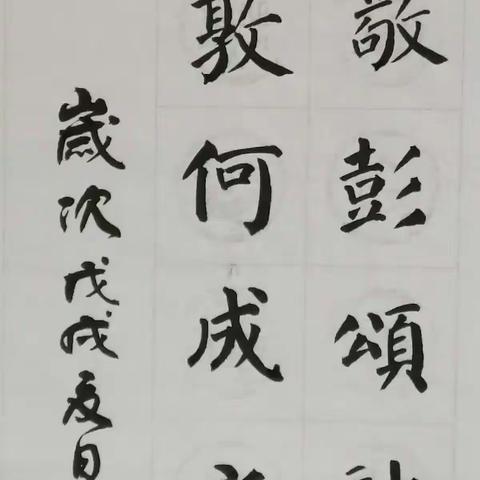 敬彭頌
敦何成
歲次戊戌夏日